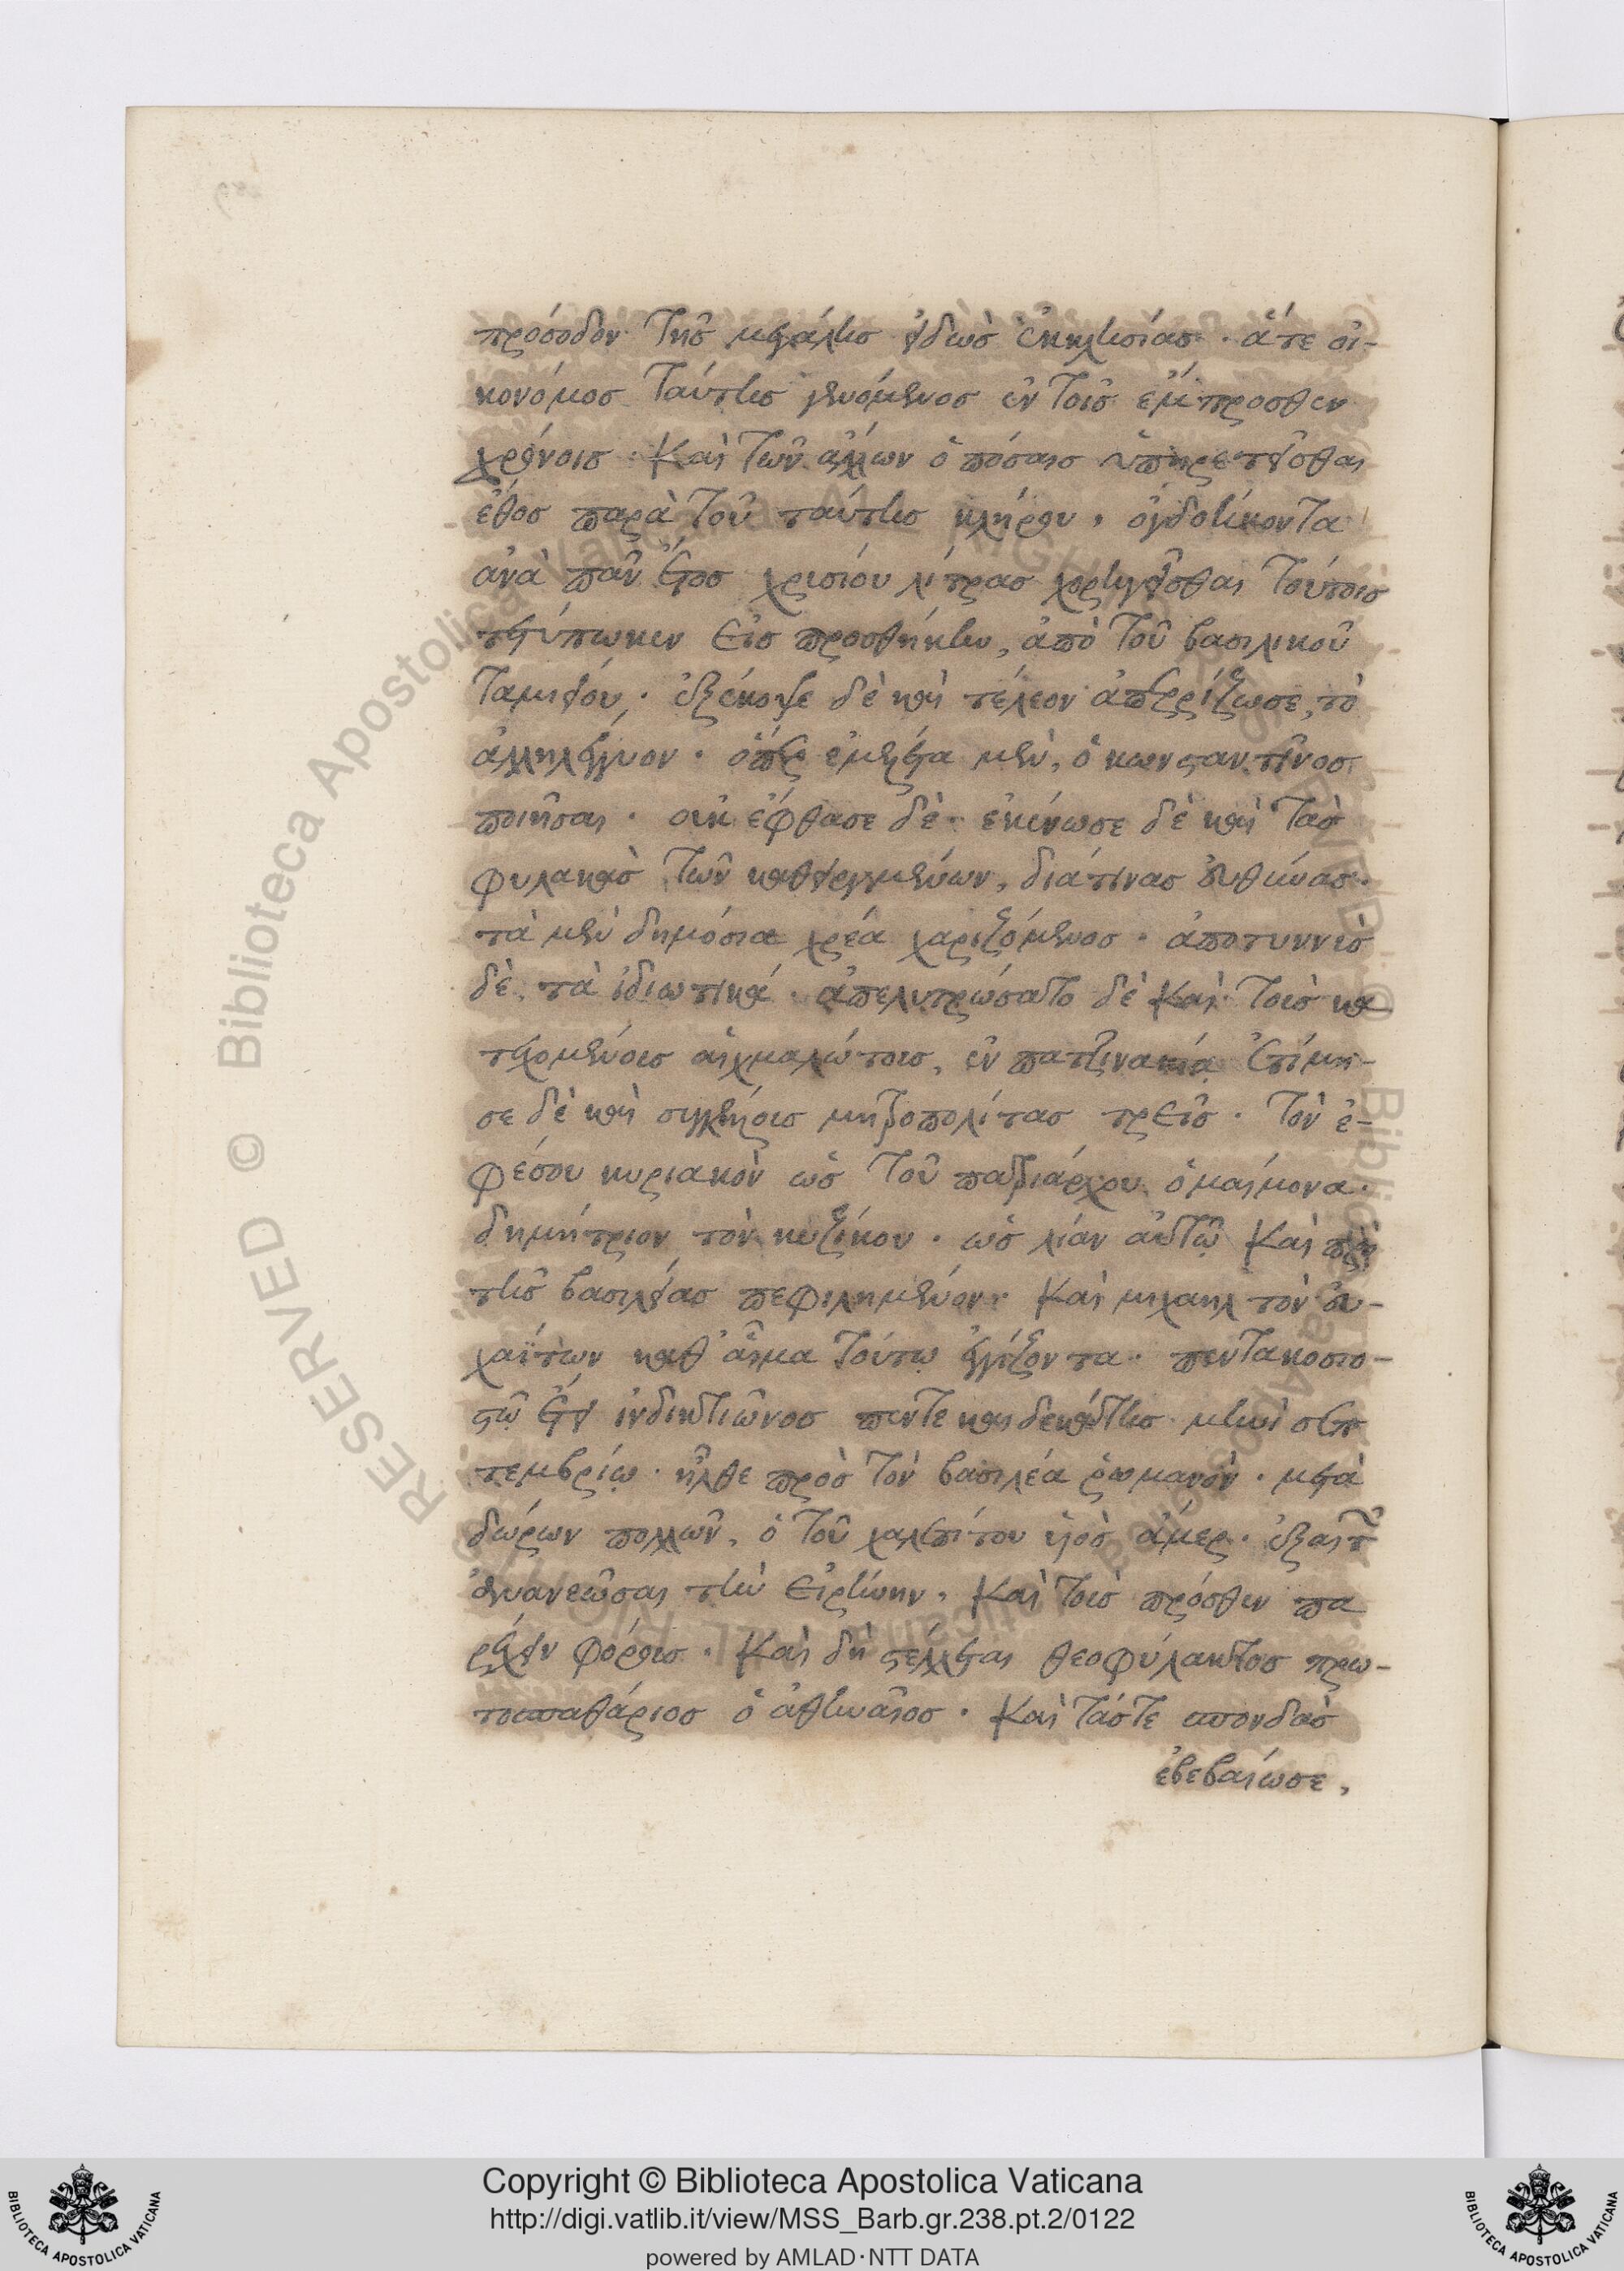 πρόσοδον τῆς μεγάλης εἰδὼς ἐκκλησίας · ἅτε οἰ-
κονόμος ταύτης γενόμενος ἐν τοῖς ἔμπροσθεν
χρόνοις · καὶ τῶν ἄλλων ὁπόσαις ὑπηρετεῖσθαι
ἔθος παρὰ τοῦ ταύτης κλήρου, ὀγδοήκοντα
ἀνὰ πᾶν ἔτος χρισίου λίτρας χορηγεῖσθαι τούτοις
τετύπωκεν εἰς προσθήκην, ἀπὸ τοῦ βασιλικοῦ
ταμιείου, · ἐξέκοψε δὲ καὶ τέλεον ἀπερρίζωσε, τὸ
ἀλληλέγγυον · ὅπερ ἐμελέτα μὲν, ὁ κωνσταντῖνος
ποιῆσαι · οὐκ ἔφθασε δέ · ἐκένωσε δὲ καὶ τὰς
φυλακὰς τῶν καθειργμένων, διά τινας εὐθύνας ·
τὰ μὲν δημόσια χρέα χαριζόμενος · ἀποτιννὺς
δὲ, τὰ ἰδιωτικά · ἀπελυτρώσατο δὲ καὶ τοὺς κα
τεχομένους αἰχμαλώτους, ἐν πατζινακίᾳ ἐτίμη-
σε δὲ καὶ συγκέλλους μητροπολίτας τρεῖς · τὸν ἐ-
φέσου κυριακὸν ὡς τοῦ πατριάρχου ὁμαίμονα ·
δημήτριον τὸν κυζίκου · ὡς λίαν αὐτῷ καὶ πρὸ
τῆς βασιλείας πεφιλημένον · καὶ μιχαηλ τὸν εὐ-
χαΐτων καθ' αἷμα τούτῳ ἐγγίζοντα · πεντακοσιο-
στῷ ἔτει ἰνδικτιῶνος πεντεκαιδεκάτης μηνὶ σεπ
τεμβρίῳ · ἦλθε πρὸς τὸν βασιλέα ῥωμανὸν · μετὰ
δώρων πολλῶν, ὁ τοῦ χαλεπίτου υἱὸς ἄμερ · ἐξαιτῶν
ἀνανεῶσαι τὴν εἰρήνην, καὶ τοὺς πρόσθεν πα
ρέχειν φόρους · καὶ δὴ στέλλεται θεοφύλακτος πρω-
τοσπαθάριος ὁ ἀθηναῖος · καὶ τάς τε σπονδὰς
ἐβεβαίωσε,
RESERVED © Biblioteca Apostolica Vaticana
Copyright © Biblioteca Apostolica Vaticana
http://digi.vatlib.it/view/MSS_Barb.gr.238.pt.2/0122
powered by AMLAD·NTT DATA
BIBLIOTECA APOSTOLICA VATICANA
BIBLIOTECA APOSTOLICA VATICANA